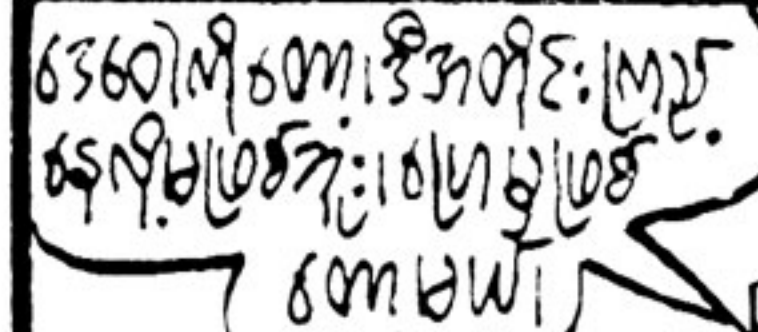 ဒေဝေါ်ကိုတော့၊ဒီအတိုင်းကြည့်
နေလို့မဖြစ်ဘူး၊ပြောမှဖြစ်
တောမယ်၊